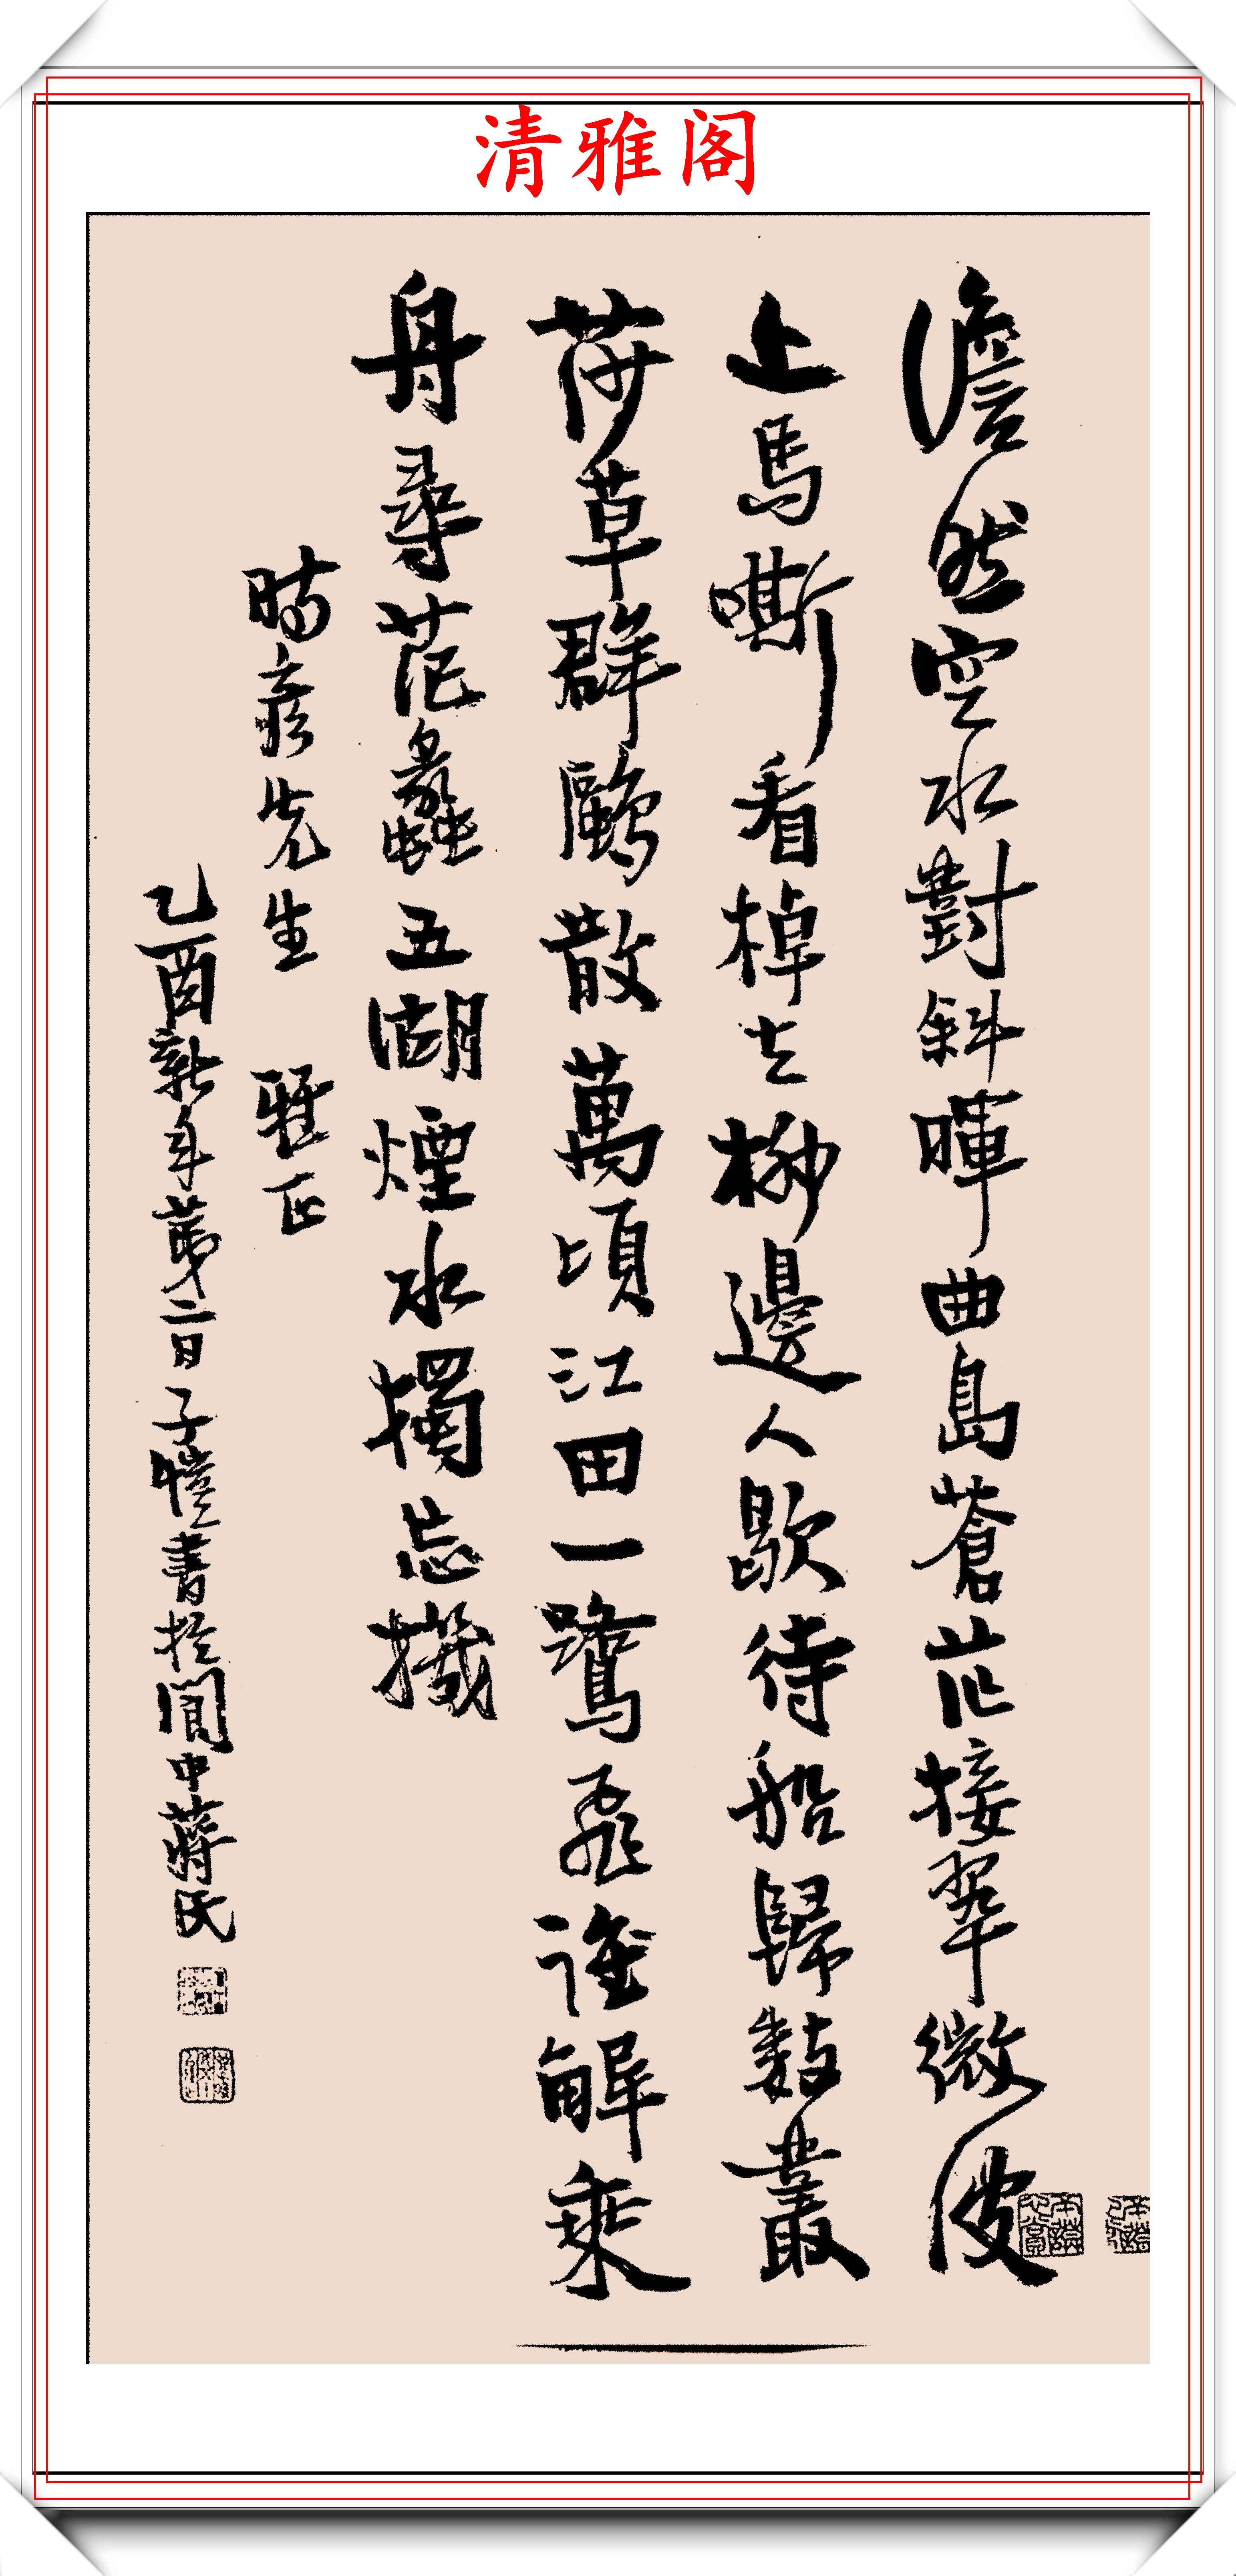 清雅阁
澹然空水對斜暉曲島蒼茫接翠微波
上馬嘶看棹去柳邊人歇待船歸數叢
莎草群鷗散萬頃江田一鷺飛誰解乘
舟尋范蠡五湖煙水獨忘機
彥先生 雅正
乙酉新年第二日子愷書於閬中蔣氏